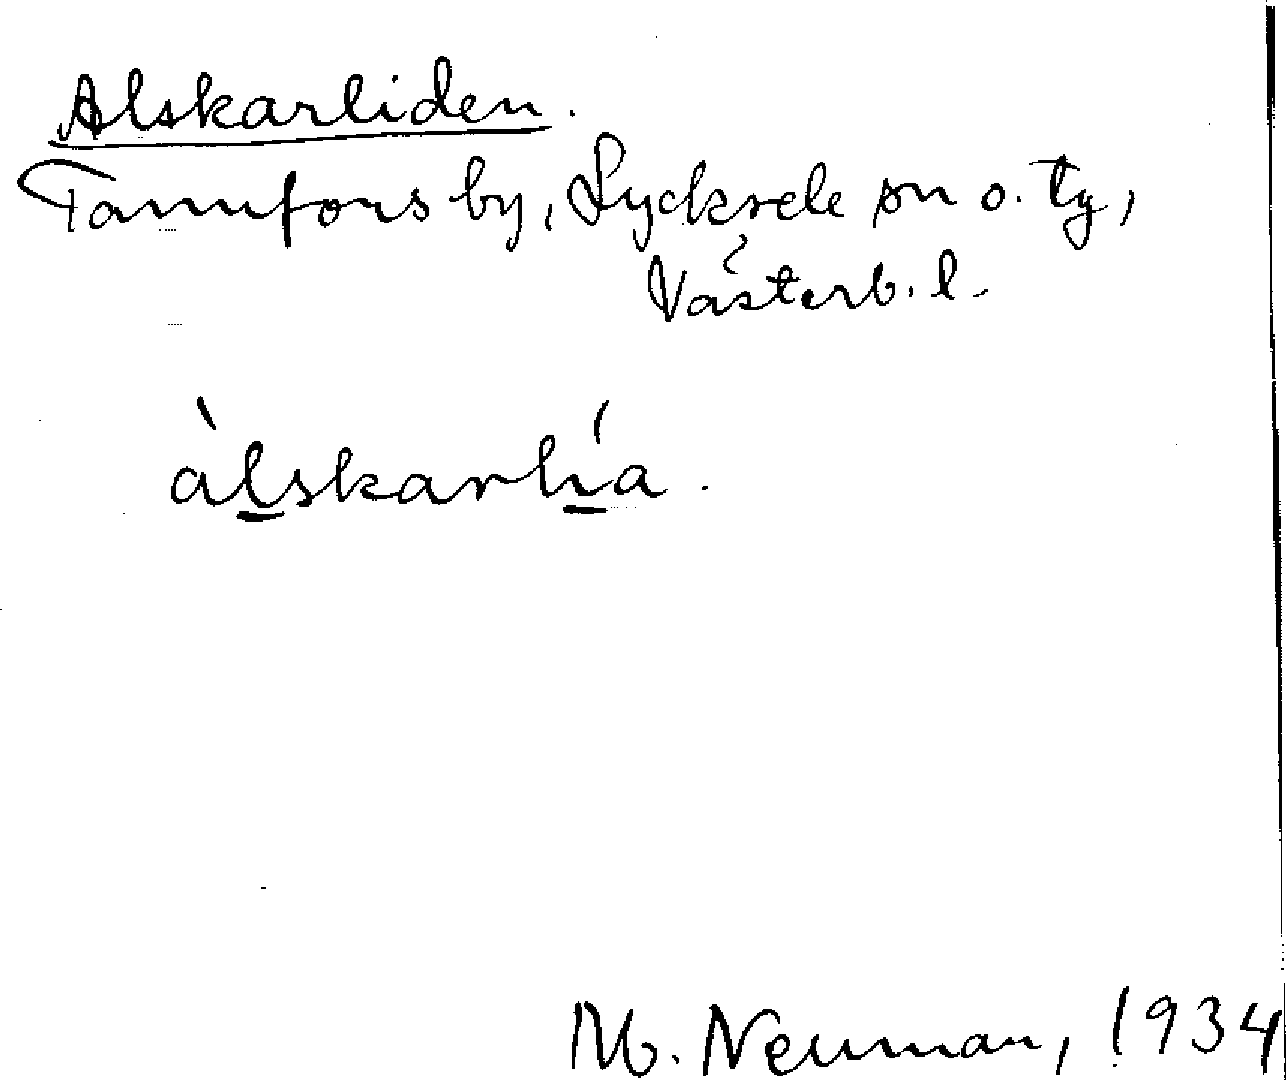 Alskarliden.
Tannfors by, Lycksele sn o. tg,
Västerb. l.
àlskarlía.
M. Neuman, 1934